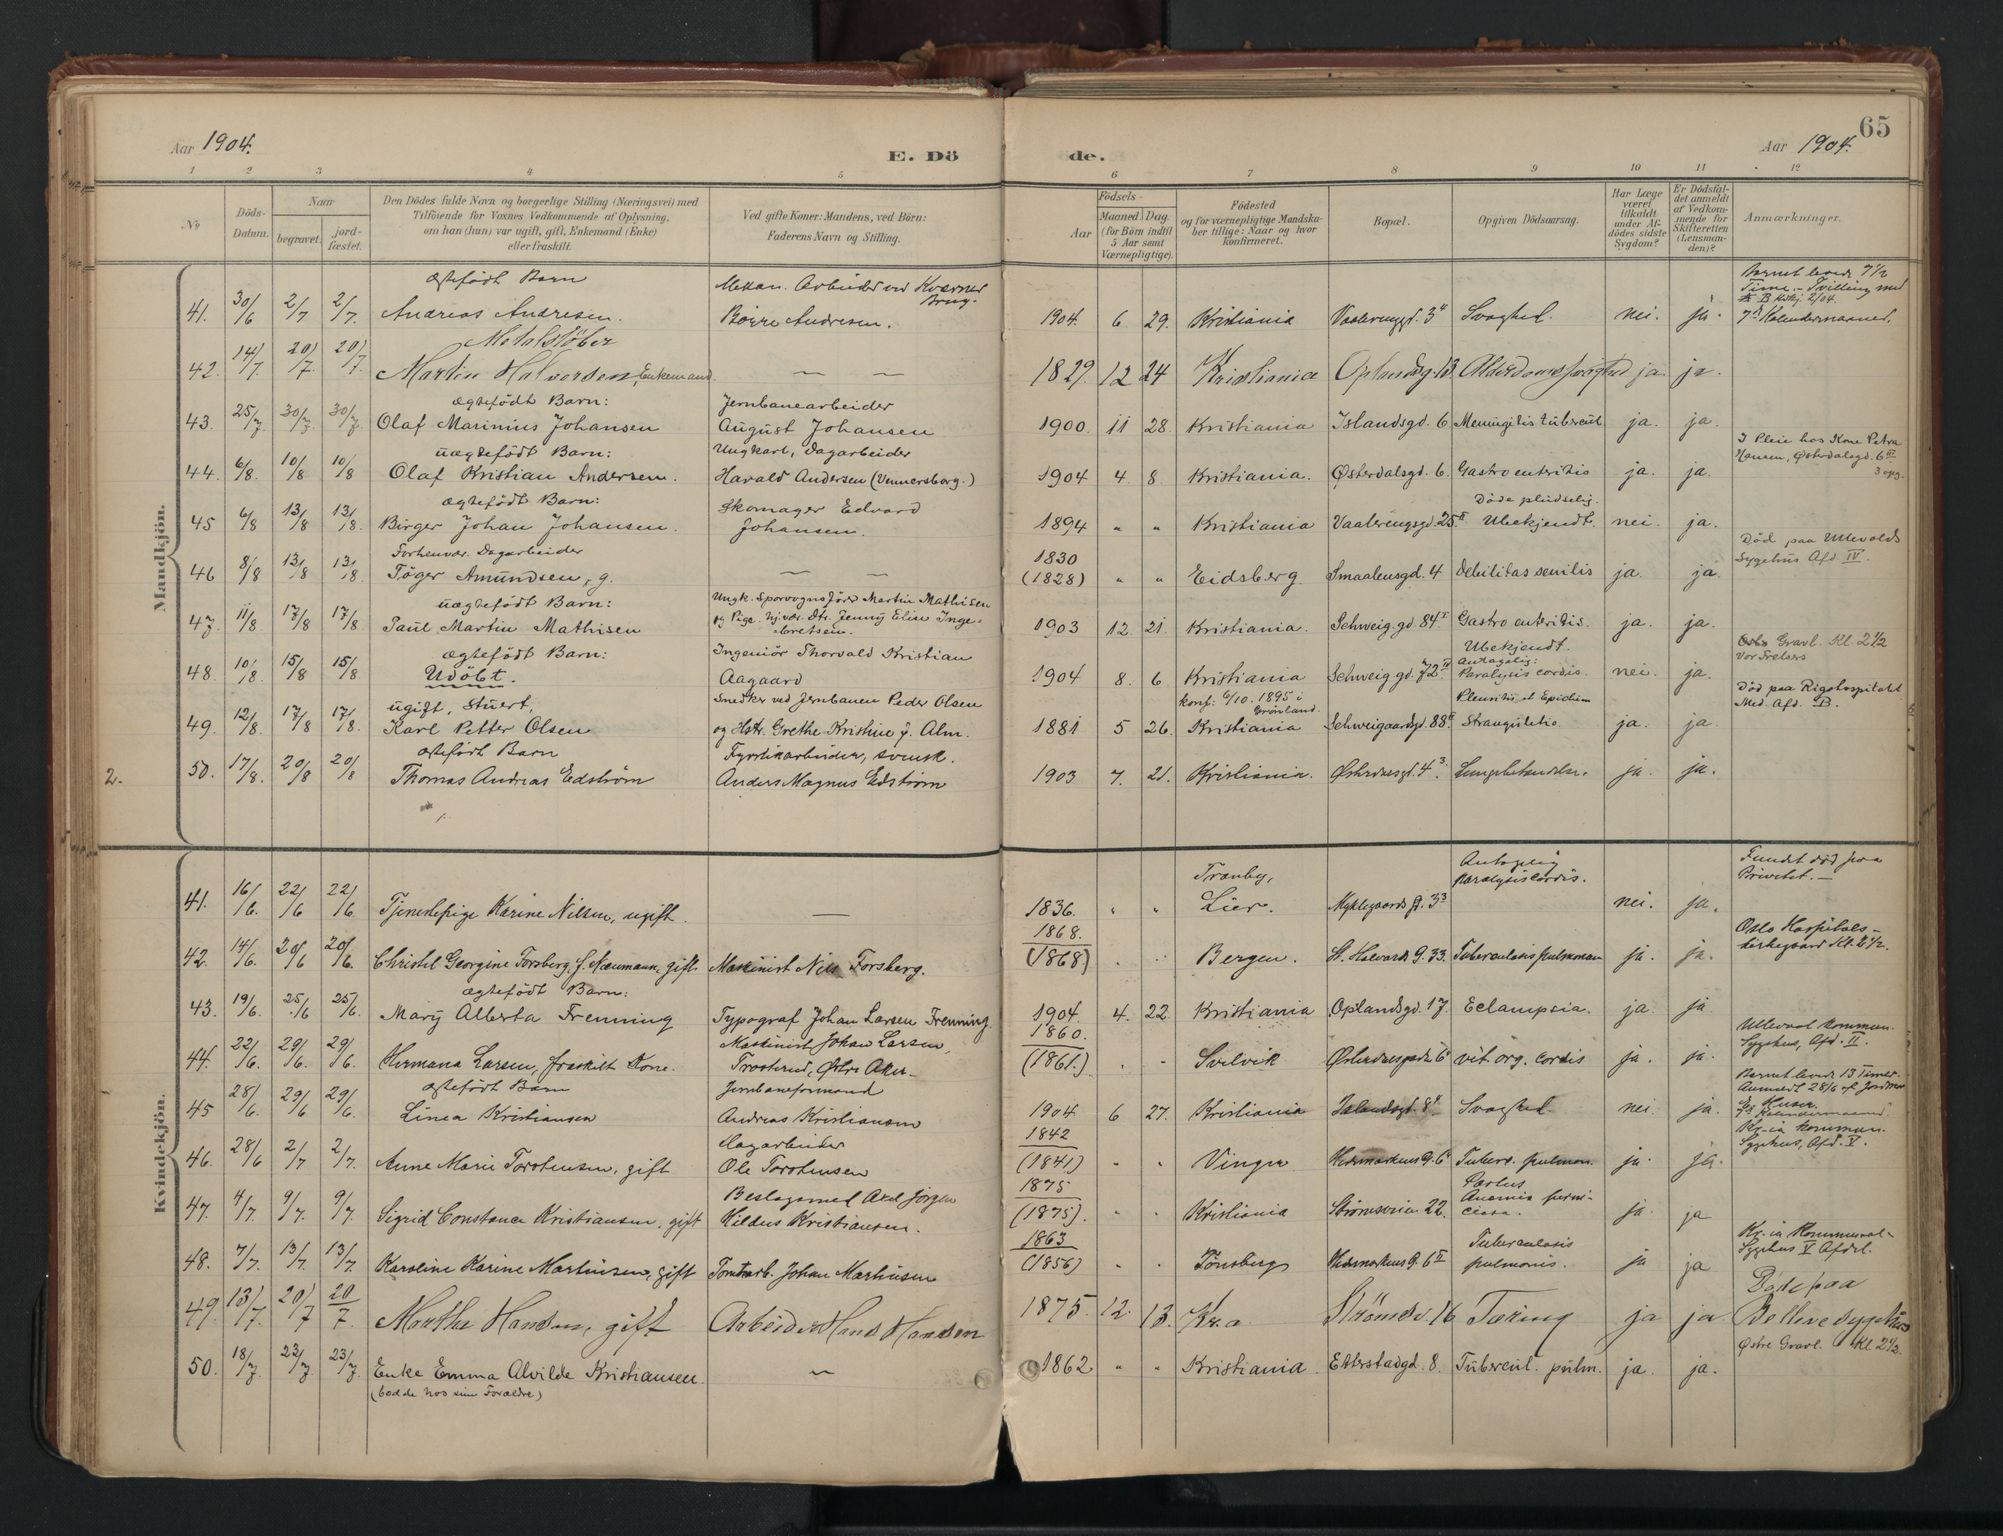 65
Aar 1904.
E. Döde.
Aar 1904.
1 2 3 4 5 6 7 8 9 10 11 12
No
Döds-Datum.
Naar
begravet.
jord-fæstet.
Den Dödes fulde Navn og borgerlige Stilling (Næringsvei) med
Tilföiende for Voxnes Vedkommende af Oplysning,
om han (hun) var ugift, gift, Enkemand (Enke)
eller fraskilt.
Ved gifte Koner: Mandens, ved Börn:
Faderens Navn og Stilling.
Födsels-
Aar
Maaned Dag
(for Börn indtil
5 Aar samt
Værnepligtige).
Födested
og for værnepligtige Mandska-
ber tillige: Naar og hvor
konfirmeret.
Bopæl.
Opgiven Dödsaarsag.
Har Læge
været
tilkaldt
under Af-
dödes sidste
Sygdom?
Er Dödsfal-
det anmeldt
af Vedkom-
mende for
Skifteretten
(Lensman-
den)?
Anmærkninger.
Mandkjön.
ægtefödt Barn
Mekan. Arbeider ved Kværner Brug.
Barnet levede 7 1/2
Time. - Tvilling med
7de Kalendermaaned.
41. 30/6 2/7 2/7. Andreas Andresen. Börre Andresen. 1904. 6 29. Kristiania Vaalerenggd. 3 Svaghed. nei. ja.
Metalstöber
42. 14/7. 20/7 20/7 Martin Halvorsen, Enkemand. — — 1829. 12 24 Kristiania Oplandsg. 13. Alderdomssvaghed ja. ja.
ægtefödt Barn: Jernbanearbeider
43. 25/7 30/7 30/7 Olaf Marinius Johansen August Johansen 1900. 11 28. Kristiania Islandsgd. 6. Meningitis tubercul. ja. ja.
uægtefödt Barn: Ungkarl, Dagarbeider
I Pleie hos Kone Petra
Hansen, Østerdalsgd. 6 III
3 opg.
44. 6/8. 10/8 10/8 Olaf Kristian Andersen. Harald Andersen (Vennersborg.) 1904 4. 8. Kristiania. Østerdalsgd. 6. Gastro enteritis ja. ja.
ægtefödt Barn: Skomager Edvard
Döde pludselig.
45 6/8 13/8 13/8. Birger Johan Johansen. Johansen. 1894 " " Kristiania Vaalerengsgd. 25 II Ubekjendt. nei. ja.
Forhenvær. Dagarbeider
1830
Död paa Ullevolds
Sygehus Afd. IV.
46 8/8 13/8 13/8. Töger Amundsen, g. — — (1828) " " Eidsberg Smaalensgd. 4 debilitas senilis ja. ja.
uægtefödt Barn: Ungk. Sporvognsförer Martin Mathisen
og Pige hj.vær. Dtr. Jenny Elin Inge-
bretsen.
47. 11/8 17/8 17/8. Paul Martin Mathisen 1903 12. 21. Kristiania. Schweig. gd. 84 I Gastro enteritis. ja. ja.
ægtefödt Barn: Ingeniör Thorvald Kristian
Ubekjendt.
Antagelig:
Gravl. Kl 2 1/2
Vor Frelsers
48. 10/8. 15/8 15/8 Udöbt. Aagaard 1904 8. 6. Kristiania Schweig gd. 72 II Paralysis cordis. nei. ja.
ugift, Stuert, Snedker ved Jernbanen Peder Olsen
konf. 6/10. 1895 i
Grönland.
Död paa Rigshospitalet
Med. Afd. B.
49. 12/8. 17/8. 17/8. Karl Petter Olsen og Hstr. Grethe Kristine f. Alm. 1881 5 26. Kristiania Schweigaardsgd. 88 II Strangulatio ja. ja.
ægtefödt Barn Fyrstikarbeider, svensk.
50. 17/8. 20/8 20/8 Thomas Andreas Edström Anders Magnus Edström 1903 7. 21. Kristiania. 4 3. Lungebetændelse. ja. ja.
2.
Kvindekjön.
Antagelig
Fundet död paa
Privetet. —
Tranby,
41. 16/6. 22/6 22/6. Tjenestepige Karine Nilsen, ugift. — 1836. " " Lier. Myklegaards g. 3 3 paralysis cordis. nei. ja.
1868.
Oslo Hospitals-
kirkegaard Kl. 2 1/2.
42. 14/6. 20/6 20/6. Christel Georgine Forsberg, f. Naumann, gift Maskinist Nils Forsberg. (1868) " " Bergen. St. Halvards G. 33. Tuberculosis pulmonum ja. ja.
ægtefödt Barn:
43. 19/6. 25/6 25/6. Mary Alberta Frenning Typograf Johan Larsen Frenning. 1904. 4. 22. Kristiania Oplandsgd. 17. Eclampsia. ja. ja
Maskinist Johan Larsen,
1860.
Ullevaal kommun.
Sygehus, Afd. II.
44. 22/6. 29/6. 29/6. Hermana Larsen, fraskilt Kone. Trosterud, Østre Aker. (1861.) Svelvik vit. org. cordis ja. ja.
ægtefödt Barn Jernbaneformand
Barnet levede 13 Timer
Anmeldt 28/6 af Jordmor
45 28/6. 29/6 29/6. Linea Kristiansen Andreas Kristiansen 1904. 6 27. Kristiania Islandsgd. 8 Svaghed nei. ja.
Dagarbeider
1842
Kr.-ia kommun.
Sygehus, Afd. V.
46. 28/6 2/7 2/7. Anne Marie Torstensen, gift Ole Torstensen (1841) " " Vinger Hedemarkens G. 6 Tuberc. pulmon. ja. ja.
Beslagsmed Axel Jörgen
1875
Partus
Anemia perni-
ciosa.
47. 4/7. 9/7. 9/7. Sigrid Constance Kristiansen, gift Hildus Kristiansen. (1875). Kristiania Strömsveien 22. ja. ja
1863
Tuberculosis
Kr.ia Kommunal-
Sygehus V Afdel.
48. 7/7. 13/7. 13/7. Karoline Karine Martinsen, gift Tomtearb. Johan Martinsen (1856) Tönsberg Hedemarkens G. 6 II pulmonis. ja ja
Döde paa
Bellevue Sygehus
49. 13/7. 20/7 20/7. Marthe Hansen, gift Arbeider Hans Hansen 1875. 12. 13. Kr.a Strömsv. 16 Tæring ja ja
Østre Gravl. Kl 2 1/2.
50. 18/7 23/7 23/7. Enke Emma Alvilde Kristiansen. — 1862 " " Kristiania. Etterstadgd. 8. Tubercul. pulm. ja. ja.
(bodde hos sine Forældre)